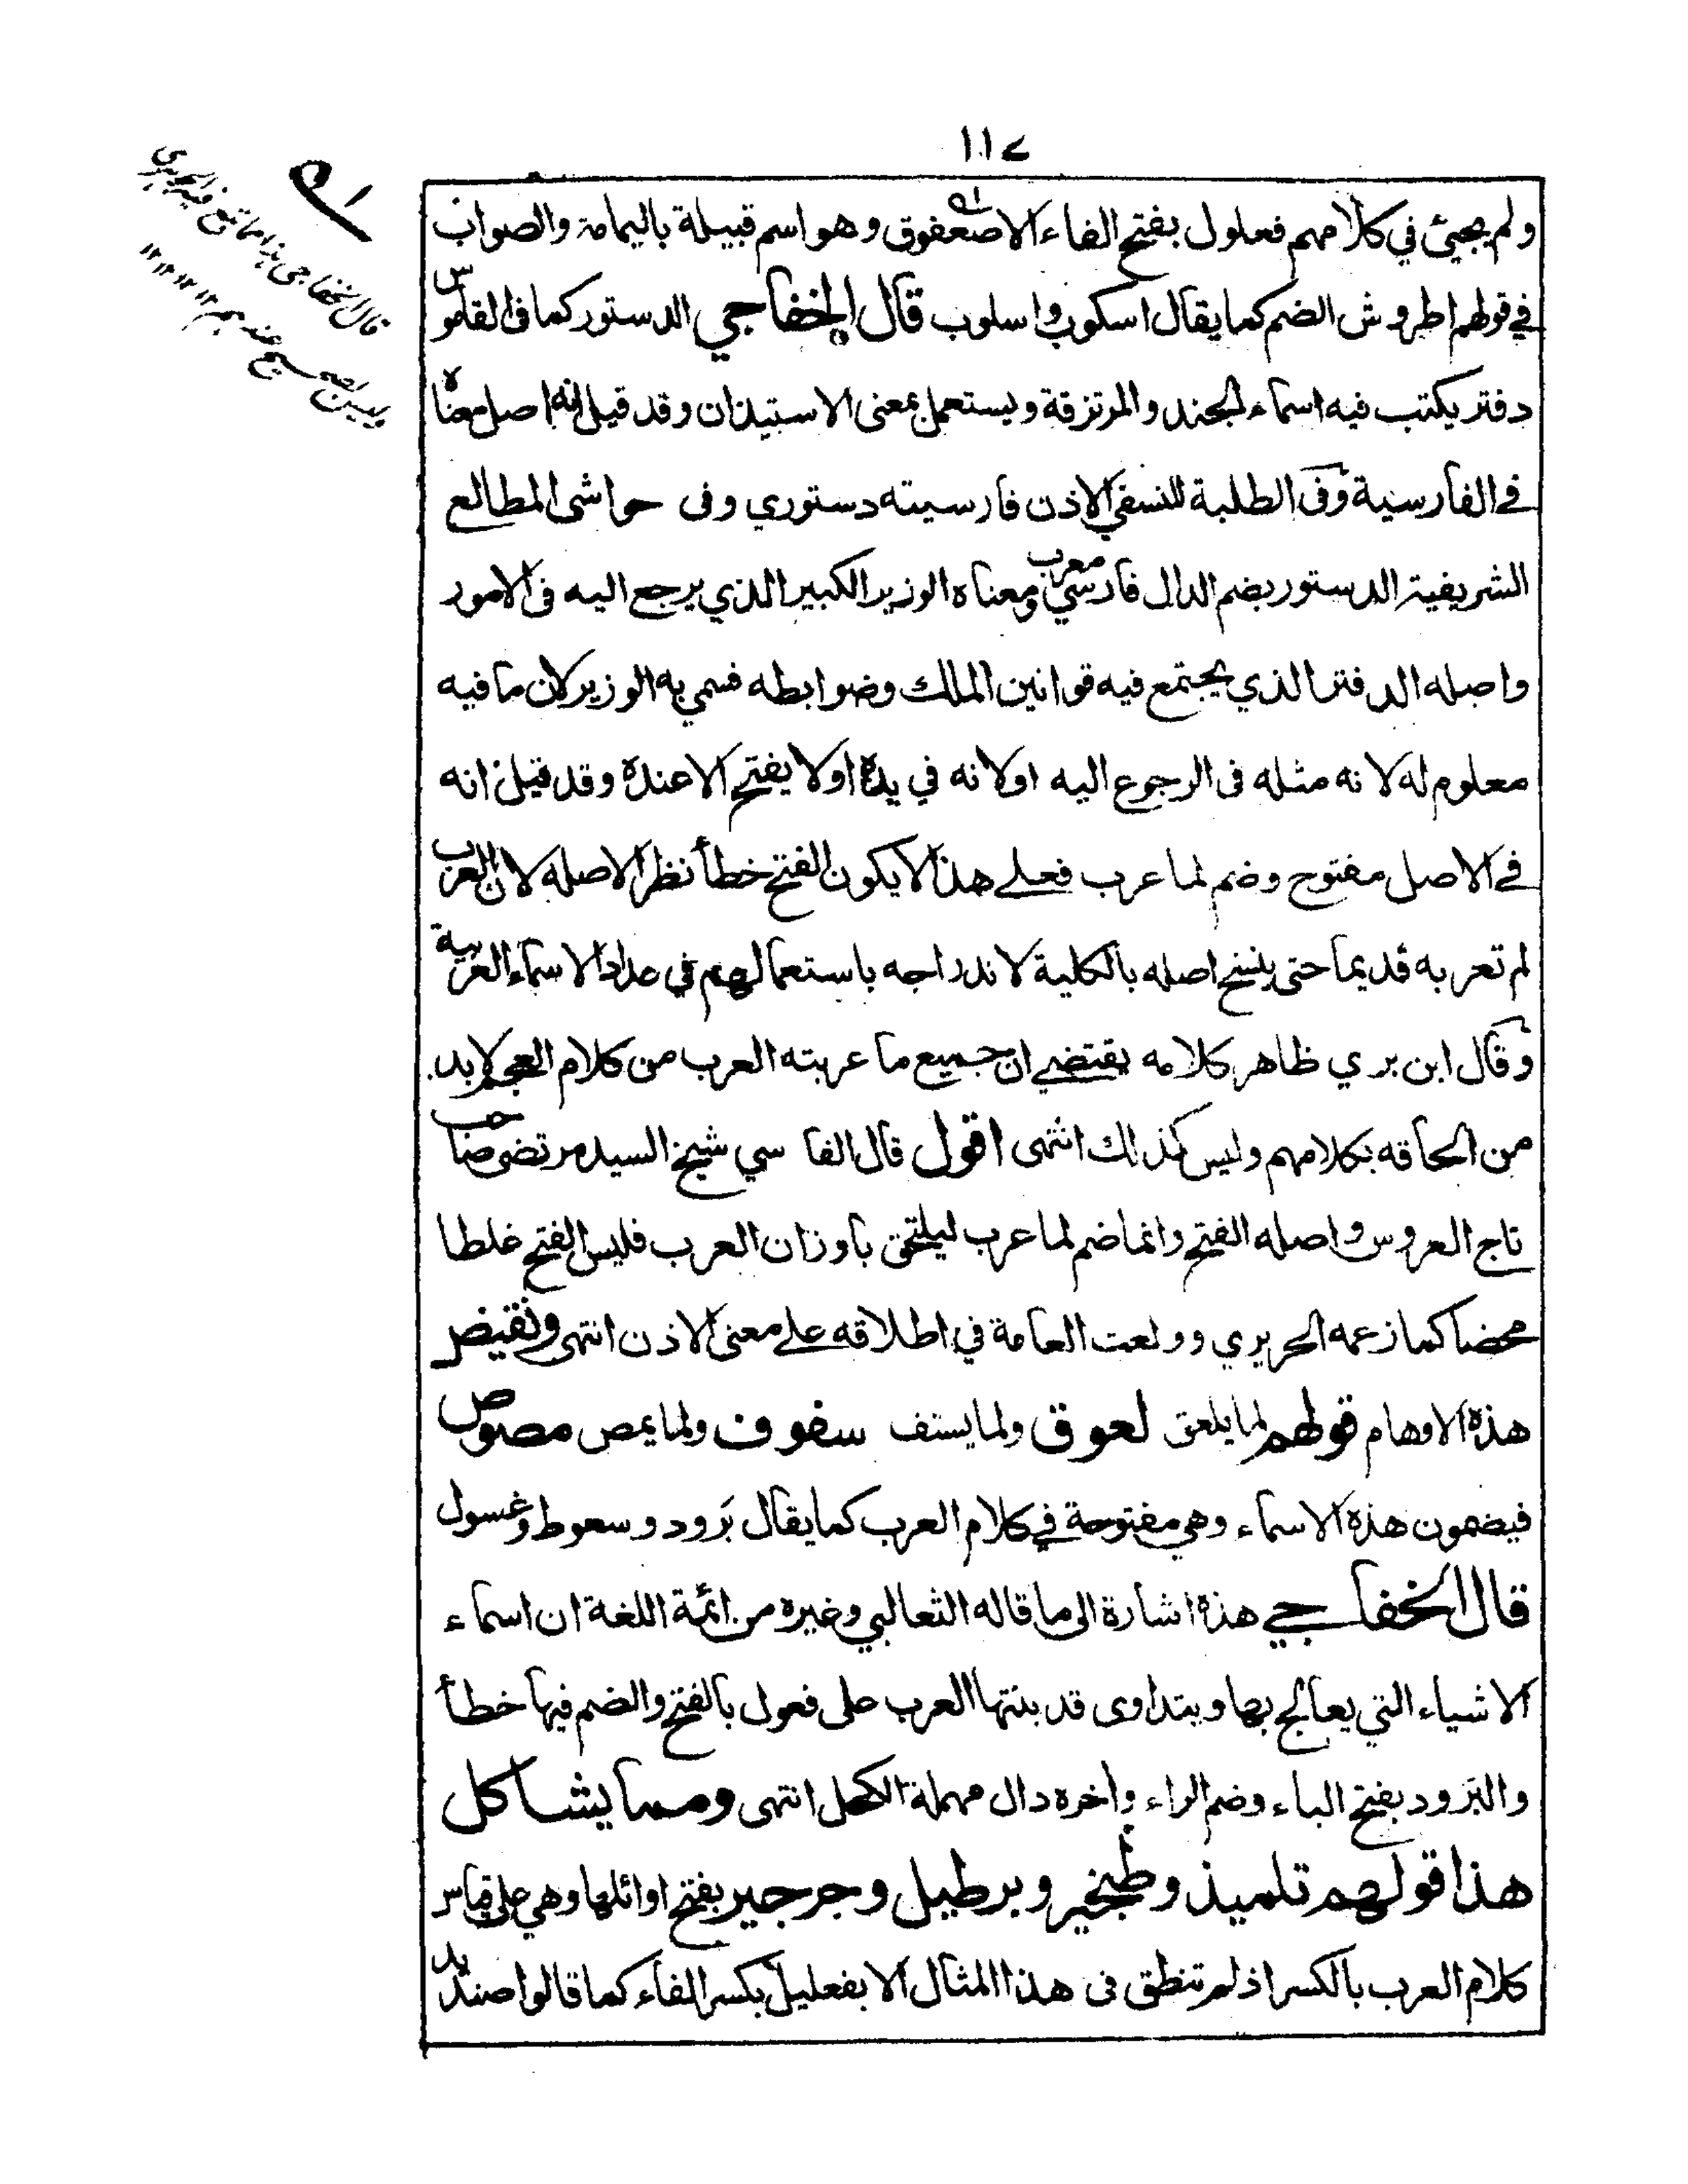 ١١٧
ولم يجيئ في كلامهم فعلول بفتح الفاء الا صعفوق وهو اسم قبيلة باليمامة والصواب
في قولهم اطروش الضم كما يقال اسكوب واسلوب قال الخفاجي الدستور كما فى القاموس
دفتر يكتب فيه اسماء الجند والمرتزقة ويستعمل بمعنى الاستيذان وقد قيل انه اصل معناه
فے الفارسية وفى الطلبة للنسفي الاذن فارسيته دستوري وفى حواشى المطالع
الشريفية الدستور بضم الدال فارسي معرب ومعناه الوزير الكبير الذي يرجع اليه فى الامور
واصله الدفتر الذي يجتمع فيه قوانين الملك وضوابطه فسمي به الوزير لان ما فيه
معلوم له لانه مثله فى الرجوع اليه اولانه في يده اولا يفتح الا عنده وقد قيل انه
فے الاصل مفتوح وضم لما عرب فعلے هذا لا يكون الفتح خطأ نظرا لاصله لان العرب
لم تعربه قديما حتى ينسخ اصله بالكلية لاندراجه باستعمالهم في عداد الاسماء العربية
وقال ابن بري ظاهر كلامه يقتضے ان جميع ما عربته العرب من كلام العجم لابد
من الحاقه بكلامهم وليس كذلك انتهى اقول قال الفا سي شيخ السيد مرتضى صاحب
تاج العروس واصله الفتح وانما ضم لما عرب ليلتحق باوزان العرب فليس الفتح غلطا
محضا كما زعمه الحريري وولعت العامة في اطلاقه علے معنى الاذن انتهى ونقيض
هذه الاوهام قولهم لما يلعق لعوق ولما يستف سفوف ولما يمص مصوص
فيضمون هذه الاسماء وهي مفتوحة فے كلام العرب كما يقال بَرود وسعوط وغسول
قال الخفاجي هذه اشارة الى ما قاله الثعالبي وغيره من ائمة اللغة ان اسماء
الاشياء التي يعالج بها ويتداوى قد بنتها العرب على فعول بالفتح والضم فيها خطأ
والبَرود بفتح الباء وضم الراء وأخره دال مهملة الكحل انتهى ومما يشاكل
هذا قولهم تلميذ وطنجير وبرطيل وجرجير بفتح اوائلها وهي على قياس
كلام العرب بالكسر اذ لم تنطق فى هذا المثال الا بفعليل بكسر الفاء كما قالوا صنديد
قال الخفاجي هذا مما تبع فيه الجوهري